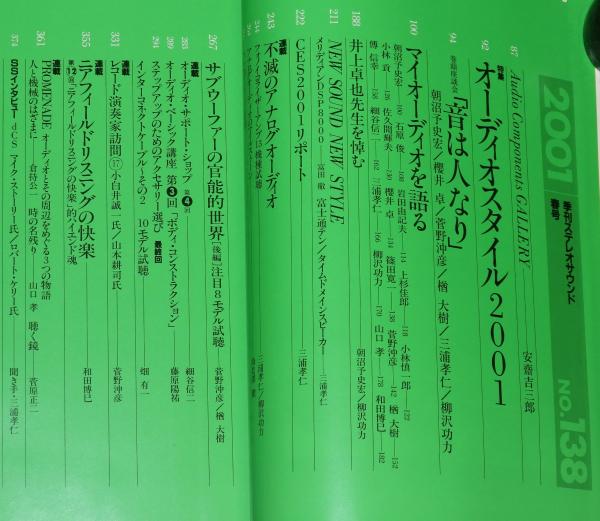 2001
季刊ステレオサウンド
春号
No.138
87
Audio Components GALLERY
安齋吉三郎
92
特集
オーディオスタイル2001
94
巻頭座談会
「音は人なり」
朝沼予史宏／櫻井 卓／菅野沖彦／楢 大樹／三浦孝仁／柳沢功力
100
マイオーディオを語る
朝沼予史宏
石原 俊
岩田由記夫
上杉佳郎
小林慎一郎
小林 貢
佐久間輝夫
櫻井 卓
篠田寛一
菅野沖彦
楢 大樹
傅 信幸
細谷信二
三浦孝仁
柳沢功力
山口 孝
和田博巳
188
井上卓也先生を悼む
朝沼予史宏／柳沢功力
211
NEW SOUND NEW STYLE
メリディアンDSP8000
富田 徹
富士通テン／タイムドメインスピーカー
三浦孝仁
222
CES2001リポート
三浦孝仁
243
連載
不滅のアナログオーディオ
244
フォノイコライザーアンプ15機種試聴
三浦孝仁／柳沢功力
267
サブウーファーの官能的世界
［後編］注目8モデル試聴
菅野沖彦／楢 大樹
連載
283
オーディオ・サポート・ショップ
第4回
細谷信二
289
オーディオ・ベーシック講座
第3回
「ボディ・コンストラクション」
藤原陽祐
294
ステップアップのためのアクセサリー選び
最終回
インターコネクトケーブル〜その2
10モデル試聴
畑 有一
331
連載
レコード演奏家訪問
⑰
小白井誠一氏／山本耕司氏
菅野沖彦
355
連載
ニアフィールドリスニングの快楽
第12回
「ニアフィールドリスニングの快楽」的ハイエンド魂
和田博巳
361
連載
PROMENADE
オーディオとその周辺をめぐる3つの物語
人と機械のはざまに
倉持公一
時の名残り
山口 孝
聴く鏡
菅原正二
374
SSインタビュー
dCS
マイク・ストーリー氏／ロバート・ケリー氏
聞き手・三浦孝仁